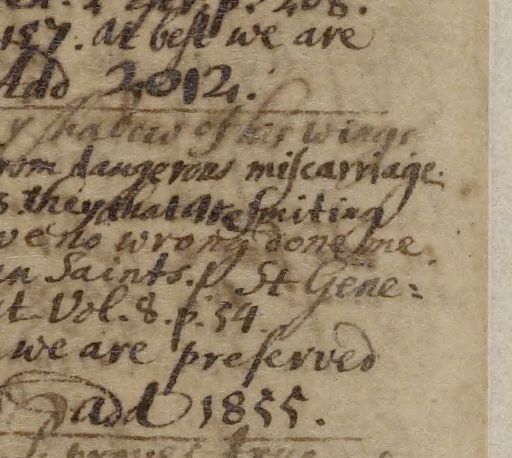 157. at best we are
Add 2012.
y shadow of his wings
rom dangerous miscarriage.
s. they that are smiting
ve no wrong done me.
an Saints. p St Gene:
t Vol. 8. p. 54.
we are preserved
add 1855.